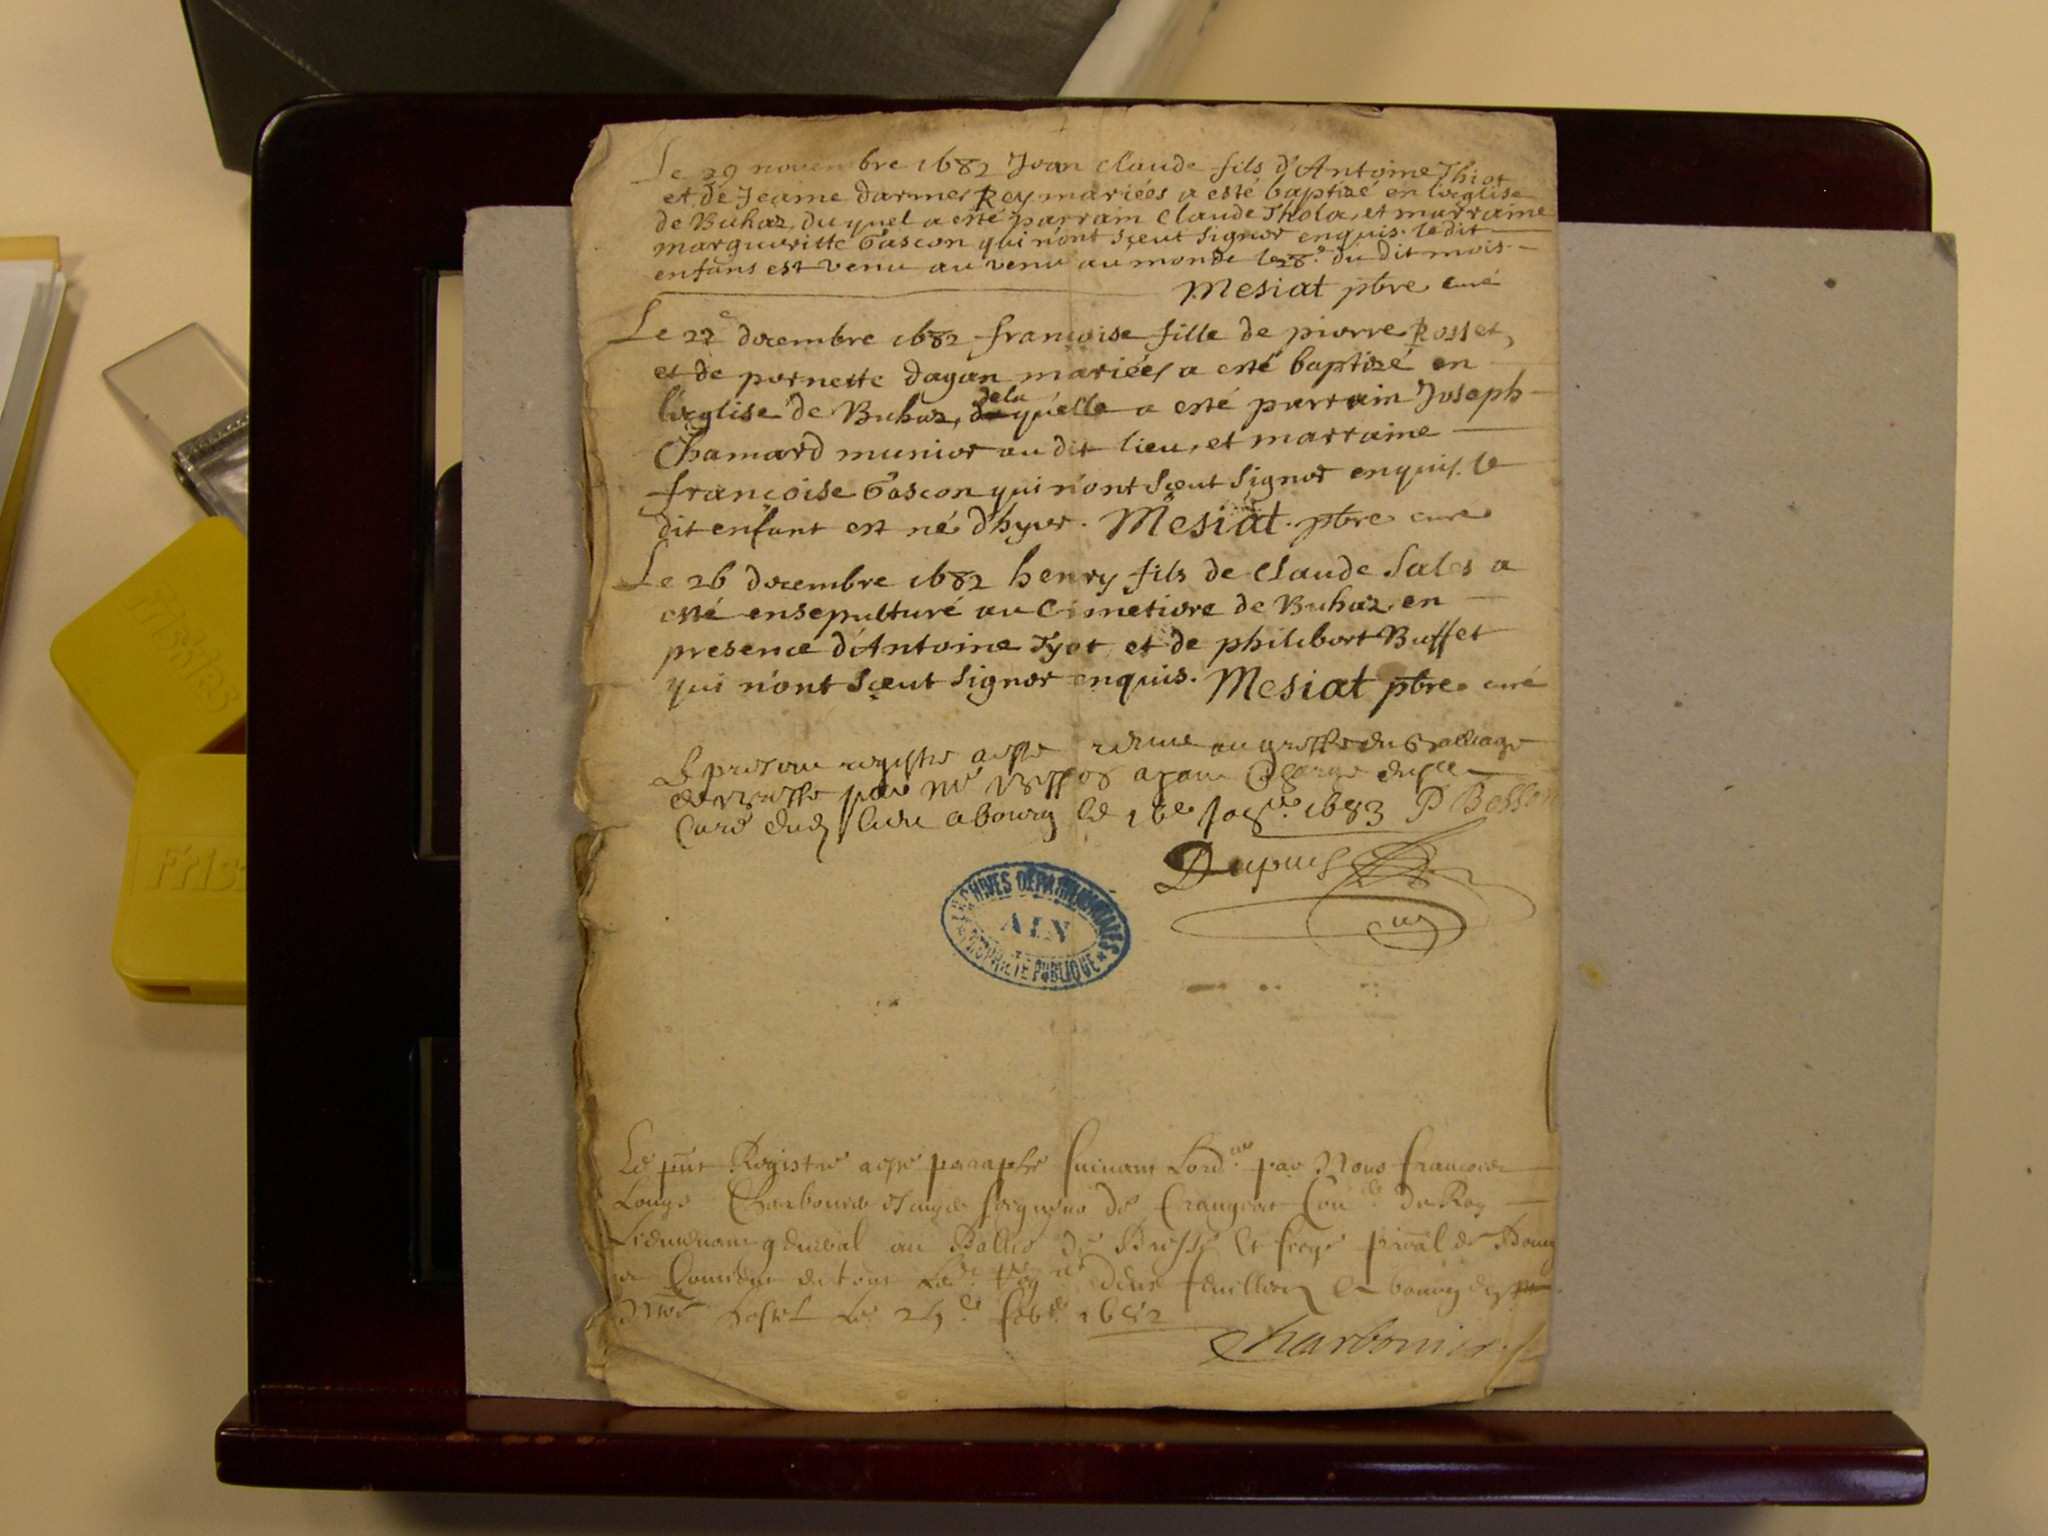 Le 29 novembre 1682 Jean Claude fils d'Antoine Thiot
et de Jeanne darmes Rey mariées a esté baptizé en l'oeglise
de Buhaz, du quel a esté parrain Claude Thola, et marraine
margueritte Gascon qui n'ont sçeut signer enquis. le dit
enfans est venu au venu au monde le 28.e du dit mois.
Mesiat pbre curé
Le 22e decembre 1682 françoise fille de pierre Rosset,
et de pernette dagan mariées a esté baptizé en
l'oeglise de Buhaz, dela quelle a esté parrain Joseph
Chamard munier au dit lieu, et marraine
françoise Gascon qui n'ont sçeut signer enquis. le
dit enfant est né d'hyer. Mesiat. pbre curé
Le 26 decembre 1682 henry fils de Claude Sales a
esté ensepulturé au Cimetiere de Buhaz, en
presence d'Antoine Tyot et de philibert Buffet
qui n'ont sçeut signer enquis. Mesiat pbre curé
Le present registre a esté remis au greffe du Balliage
de Bresse par
Curé dud lieu a bourg le 16e 1683 P Besson
Dupuis
ARCHIVES DÉPARTEMENTALES
AIN
PROPRIÉTÉ PUBLIQUE
Le pnt Registre a esté paraphé suivant Lord.ce par Nous francois
Louys Charbonnier seigneur de Crangeat Con.er du Roy
Lieutenant general au Balliage de Bresse et siege p.al de Bourg
et contient en tout deux feuillets a bourg
hostel Le 24.e feb. 1682
Charbonnier
Friskies
Friskies